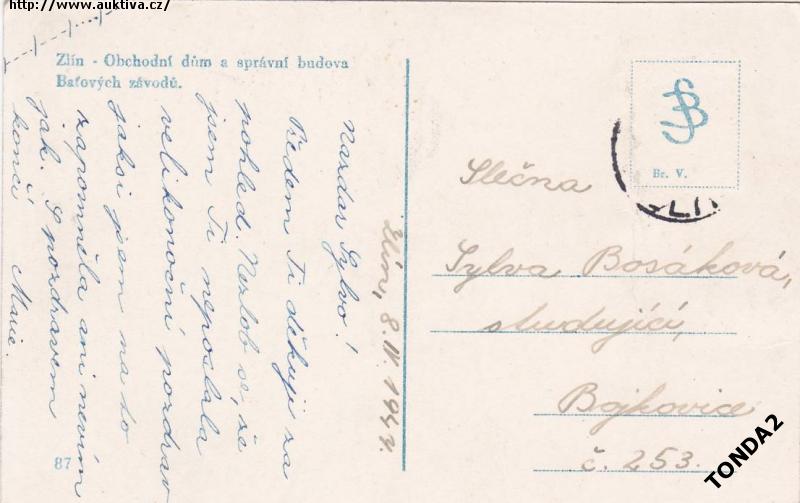 http://www.auktiva.cz/
Zlín - Obchodní dům a správní budova
Baťových závodů.
Zlín, 8. IV. 1942.
Nazdar Sylvo!
Předem Ti děkuji za
pohled. Nezlob se, že
jsem Ti neposlala
velikonoční pozdrav
jaksi jsem na to
zapomněla ani nevím
jak. S pozdravem
končí Marie.
87
Br. V.
ZLÍN
Slečna
Sylva Bosáková,
studující,
Bojkovice
č. 253.
TONDA2